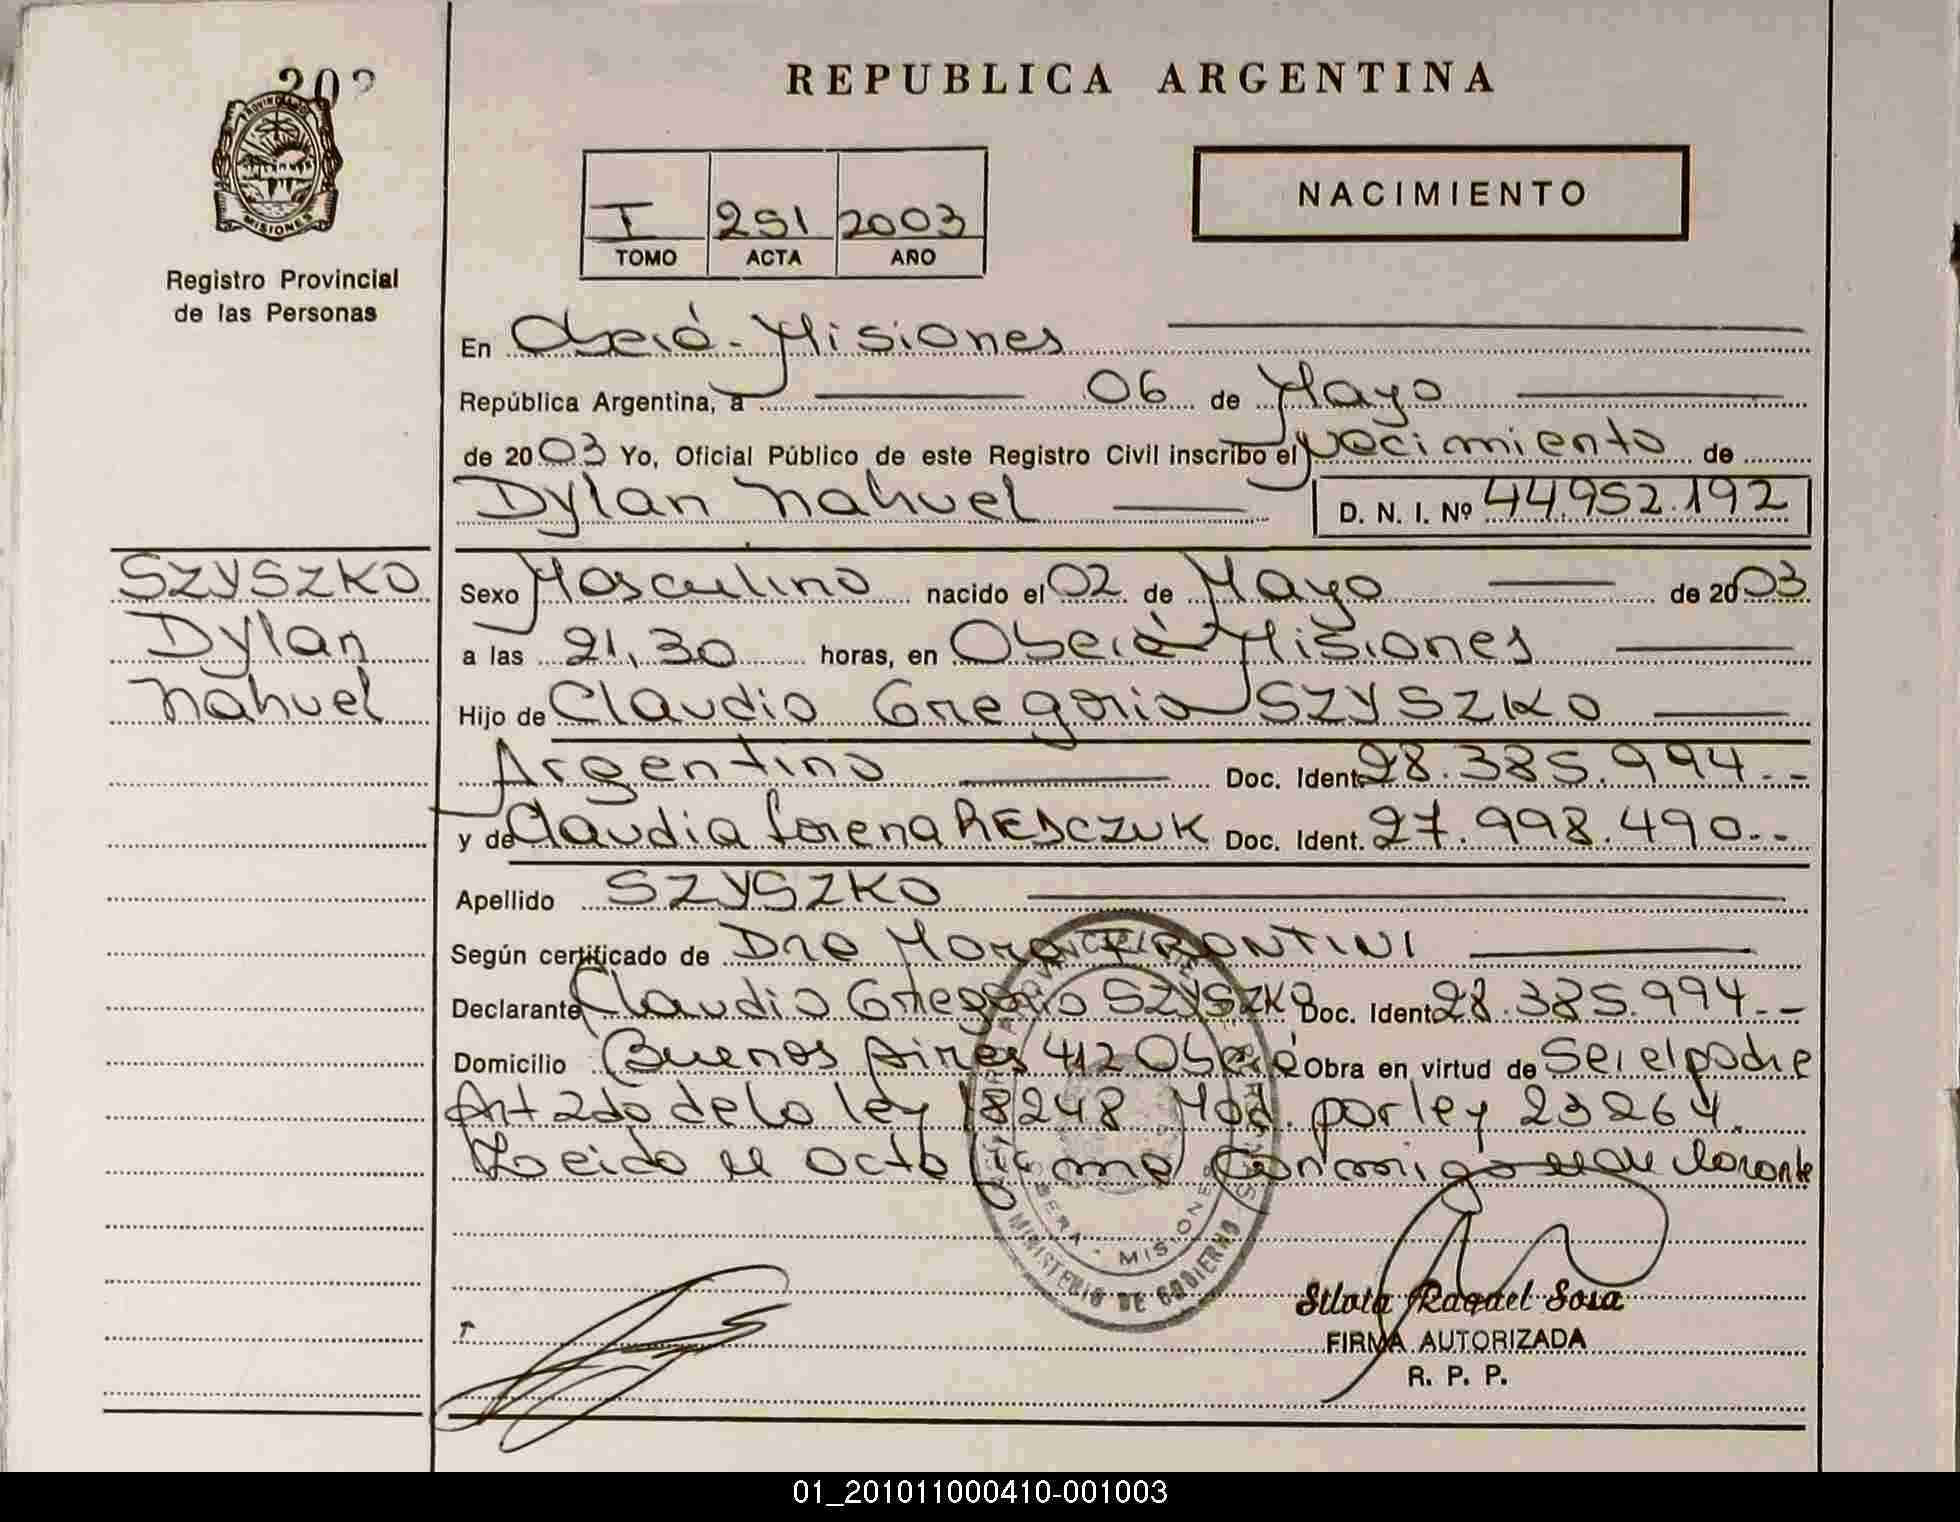 202
REPUBLICA ARGENTINA
MISIONES
Registro Provincial
de las Personas
I 291 2003
TOMO ACTA AÑO
NACIMIENTO
En Oberá - Misiones
República Argentina, a 06 de Mayo
de 2003 Yo, Oficial Público de este Registro Civil inscribo el nacimiento de
Dylan Nahuel D. N. I. Nº 44.952.192
SZYSZKO
Dylan
Nahuel
Sexo Masculino nacido el 02 de Mayo de 2003
a las 21,30 horas, en Oberá Misiones
Hijo de Claudio Gregorio SZYSZKO
Argentino Doc. Ident. 28.385.994.--
y de Claudia Lorena RESCZUK Doc. Ident. 27.998.490.--
Apellido SZYSZKO
Según certificado de Dra Mora FRONTINI
Declarante Claudio Gregorio SZYSZKO Doc. Ident. 28.385.994.--
Domicilio Buenos Aires 412 Oberá Obra en virtud de Ser el padre
Art 2do de la ley 18248 Mod. por ley 23264.
Leido el acta firma conmigo el declarante
OBERA - MISIONES
MINISTERIO DE GOBIERNO
Raquel Sosa
FIRMA AUTORIZADA
R. P. P.
01_201011000410-001003